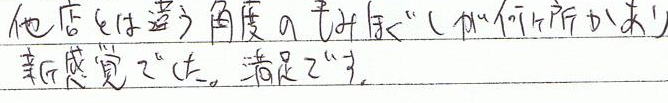 他店とは違う角度のもみほぐしが何ヶ所かあり
新感覚でした。満足です。